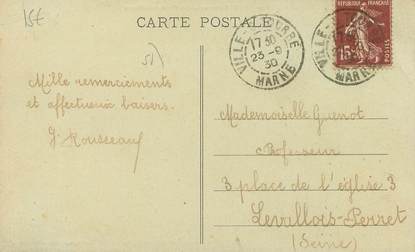 15€
CARTE POSTALE
RÉPUBLIQUE FRANÇAISE
15c
POSTES
17 30
23-9
30
MARNE
MARNE
5/
Mille remerciements
et affectueux baisers.
G. Rousseau
Mademoiselle Guenot
Professeur
3 place de l'église 3
Levallois-Perret
(Seine)